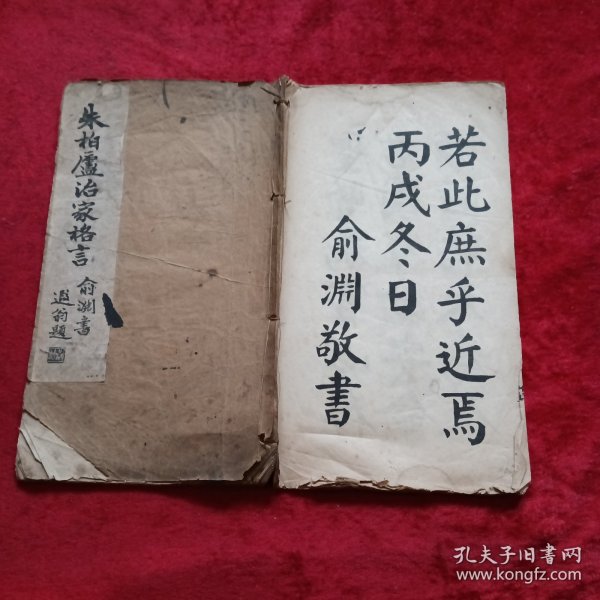 若此庶乎近焉
丙戌冬日
俞淵敬書
朱柏廬治家格言
俞淵書
遐翁題
孔夫子旧书网
www.kongfz.com